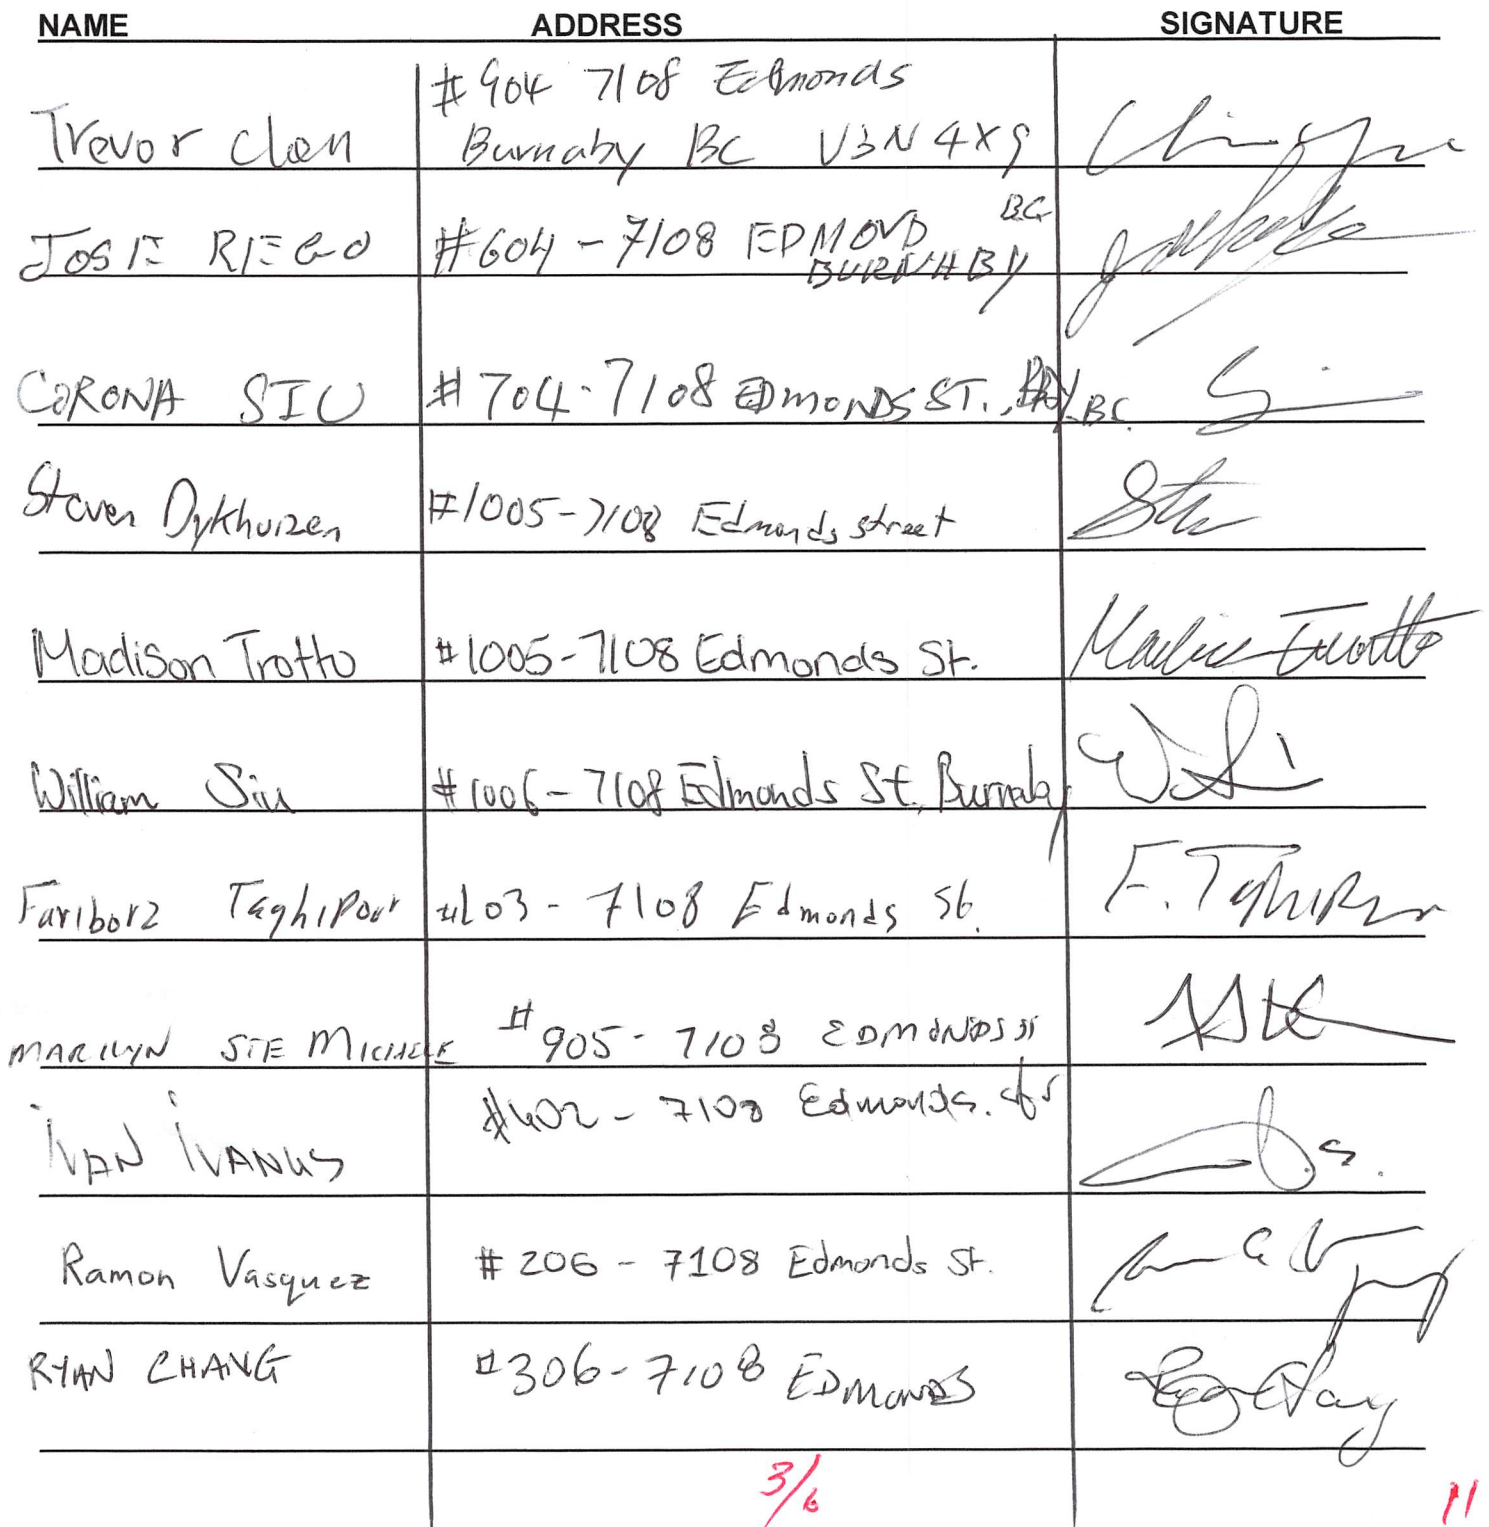 NAME ADDRESS SIGNATURE
#904 7108 Edmonds
Trevor Burnaby BC V3N 4X9
BC
JOSE RIEGO #604 - 7108 EDMOND
BURNABY
CORONA SIU #704-7108 EDMONDS ST., BBY. BC.
Steven Dykhuizen #1005-7108 Edmonds street
Madison Trotto #1005-7108 Edmonds St. Madison Trotto
William Siu #1006-7108 Edmonds St, Burnaby W Siu
Fariborz Taghipour #103 - 7108 Edmonds St. F. Taghipour
MARILYN STE MICHELE #905-7108 EDMONDS ST
#402 - 7108 Edmonds.
IVAN IVANUS
Ramon Vasquez #206 - 7108 Edmonds St.
RYAN CHANG #306-7108 EDMONDS
3/6
11